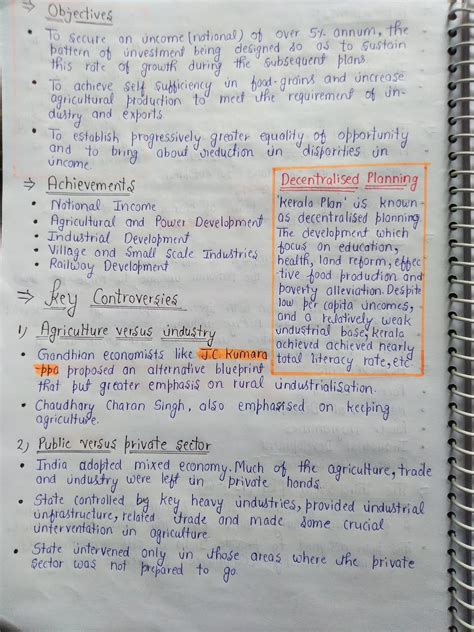 ⇒ Objectives
• To secure an income (national) of over 5% annum, the
pattern of investment being designed so as to sustain
this rate of growth during the subsequent plans
• To achieve self sufficiency in food-grains and increase
agricultural production to meet the requirement of in-
dustry and exports
• To establish progressively greater equality of opportunity
and to bring about reduction in disparities in
income.
⇒ Achievements
• National Income
• Agricultural and Power Development
• Industrial Development
• Village and Small Scale Industries
• Railway Development
Decentralised Planning
'Kerala Plan' is known
as decentralised planning.
The development which
focus on education,
health, land reform, effec-
tive food production and
poverty alleviation. Despite
low per capita incomes,
and a relatively weak
industrial base, Kerala
achieved achieved nearly
total literacy rate, etc.
⇒ Key Controversies
1) Agriculture versus industry
• Gandhian economists like J.C. Kumara
ppa proposed an alternative blueprint
that put greater emphasis on rural industrialisation.
• Chaudhary Charan Singh, also emphasised on keeping
agriculture.
2) Public versus private sector
• India adopted mixed economy. Much of the agriculture, trade
and industry were left in private hands.
• State controlled by key heavy industries, provided industrial
infrastructure, related trade and made some crucial
interventation in agriculture.
• State intervened only in those areas where the private
sector was not prepared to go.